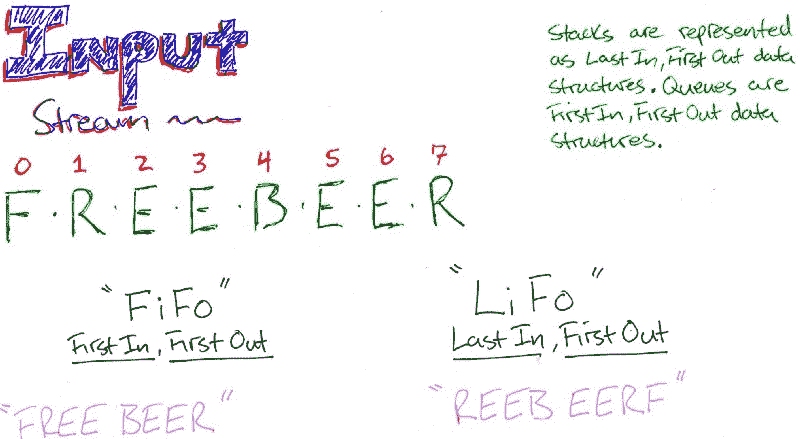 Input
Stream
Stacks are represented
as Last In, First Out data
structures. Queues are
First In, First Out data
structures.
0 1 2 3 4 5 6 7
F · R · E · E · B · E · E · R
"FiFo"
First In, First Out
"FREE BEER"
"LiFo"
Last In, First Out
"REEB EERF"